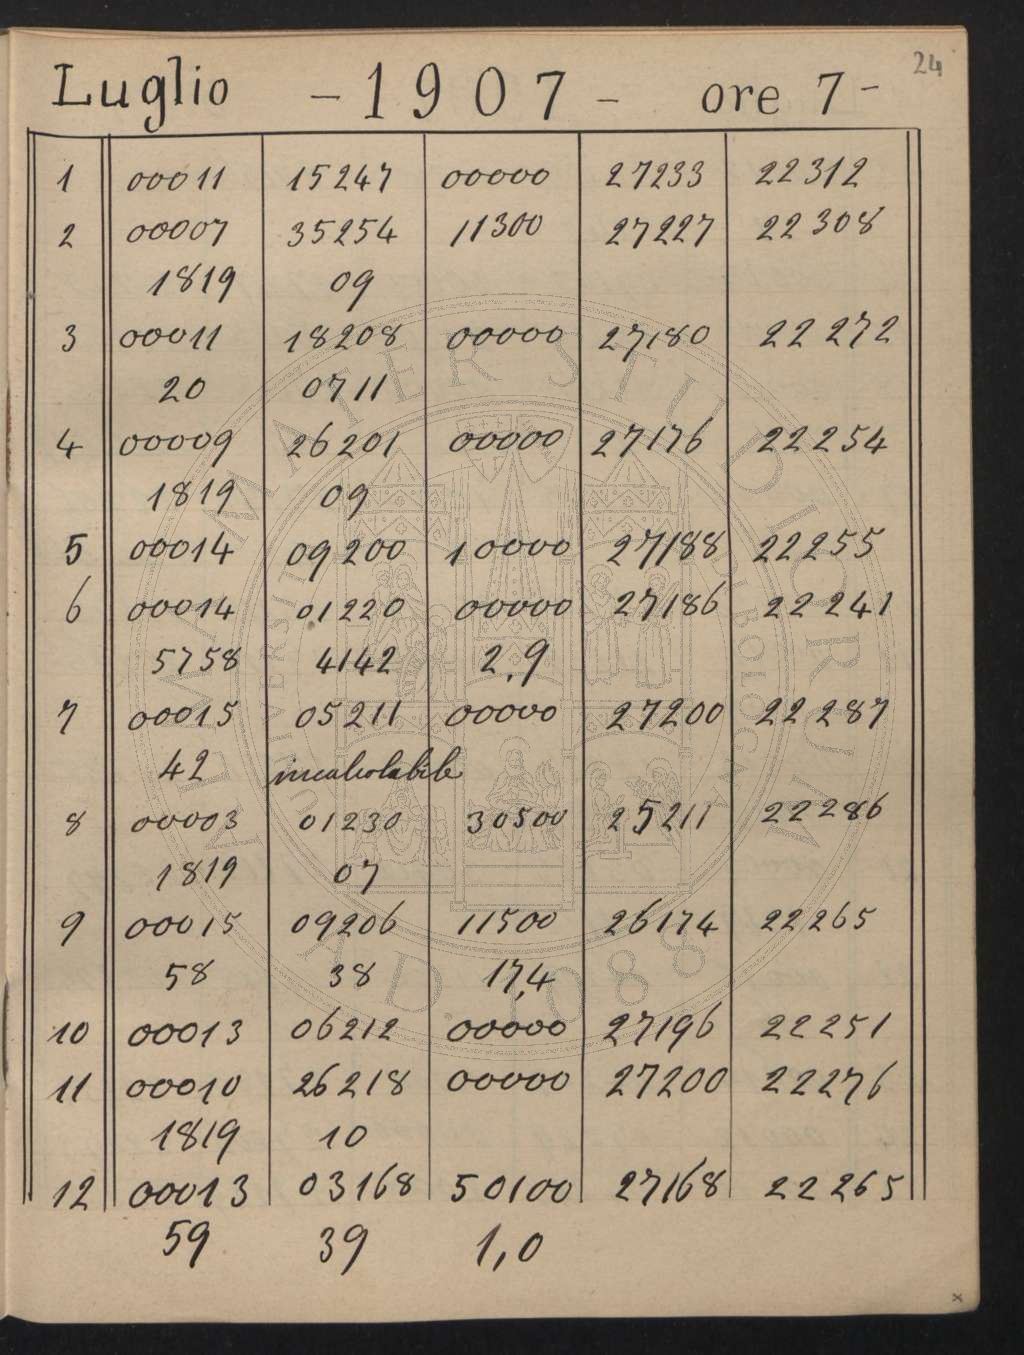 24
Luglio - 1907 - ore 7 -
1 00011 15247 00000 27233 22312
2 00007 35254 11300 27227 22308
1819 09
3 00011 18208 00000 27180 22272
20 0711
4 00009 26201 00000 27176 22254
1819 09
5 00014 09200 10000 27188 22255
6 00014 01220 00000 27186 22241
5758 4142 2,9
7 00015 05211 00000 27200 22287
42 incalcolabile
8 00003 01230 30500 25211 22286
1819 07
9 00015 09206 11500 26174 22265
58 38 17,4
10 00013 06212 00000 27196 22251
11 00010 26218 00000 27200 22276
1819 10
12 00013 03168 50100 27168 22265
59 39 1,0
x
ALMA MATER STUDIORUM
A.D. 1088